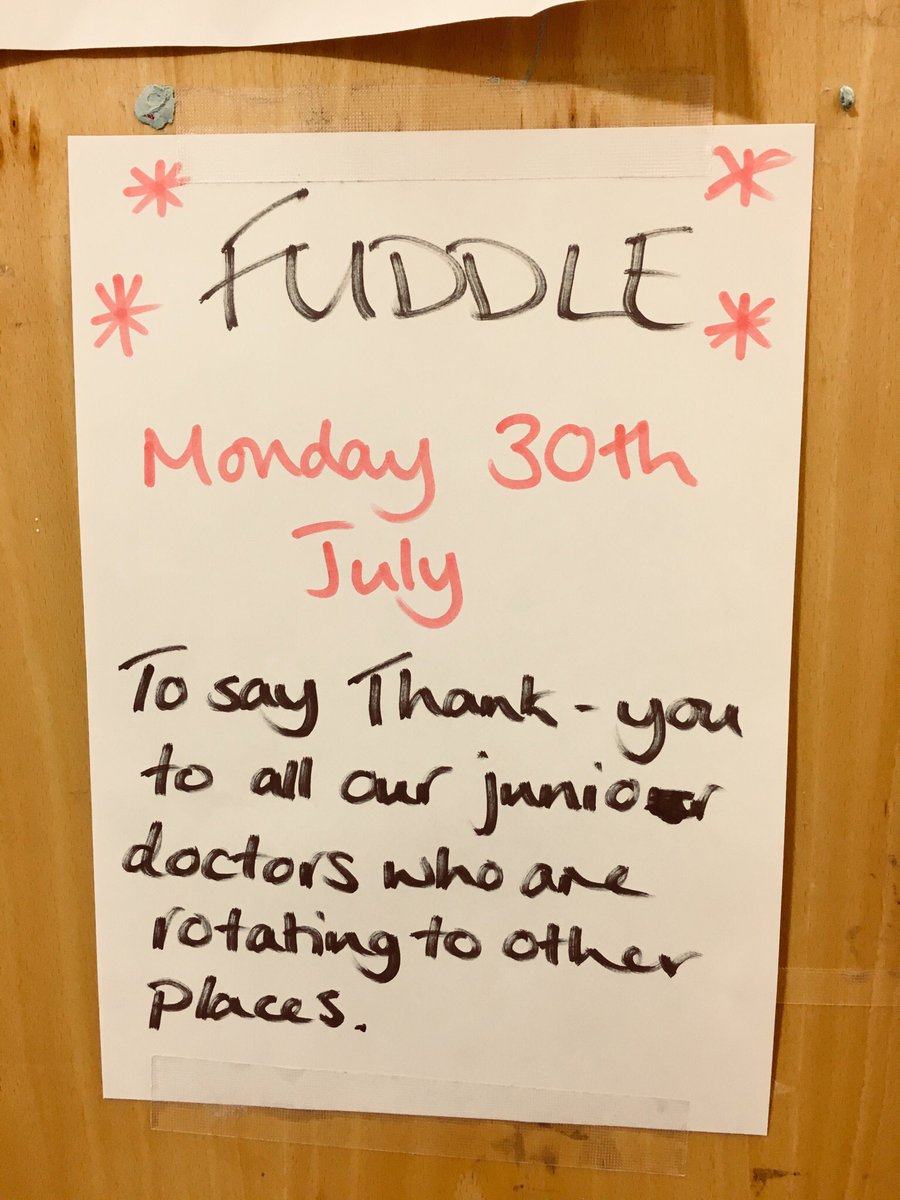 FUDDLE
Monday 30th
July
To say Thank-you
to all our junior
doctors who are
rotating to other
places.